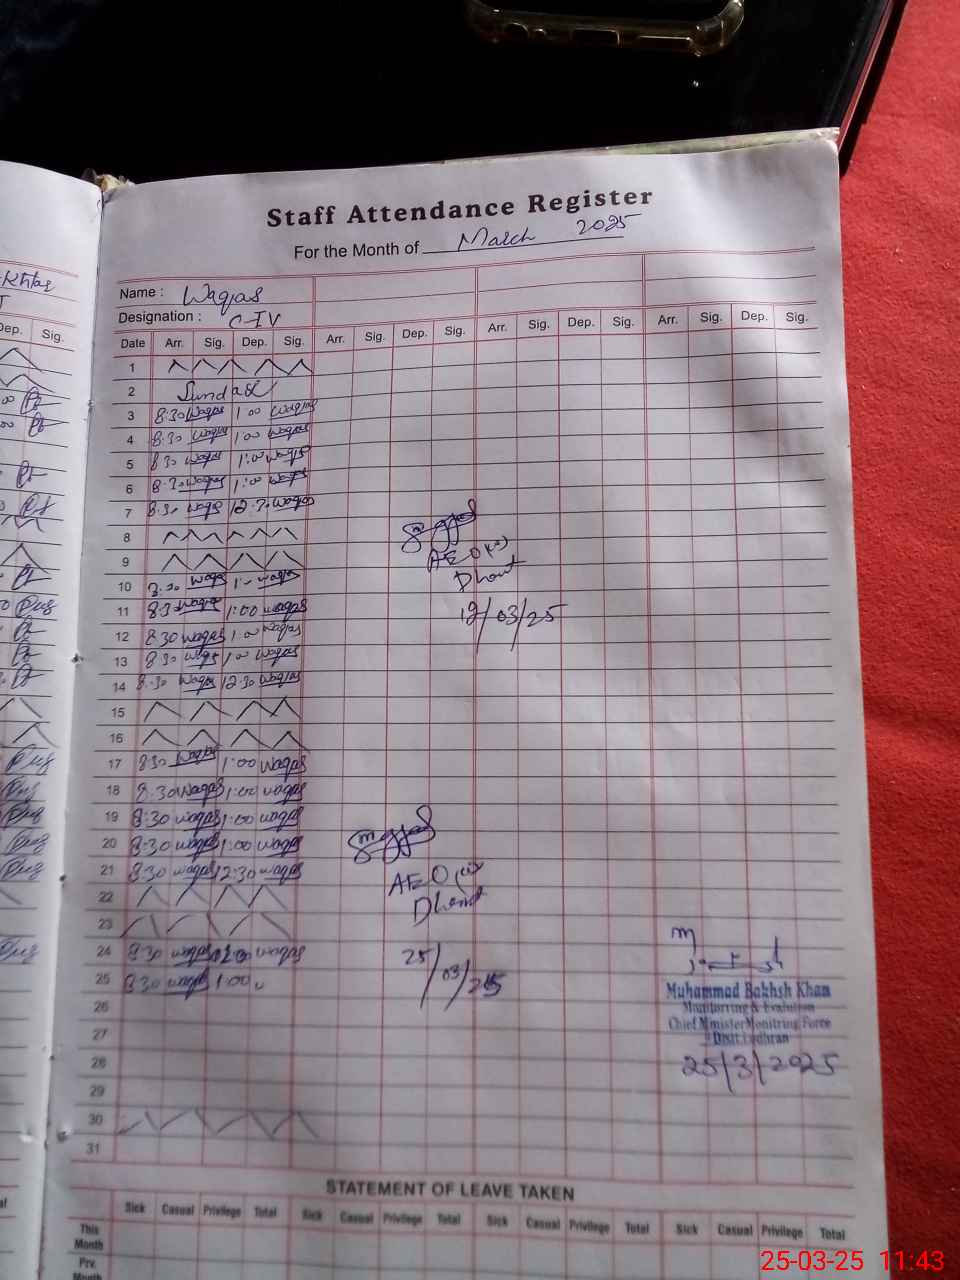 Staff Attendance Register
For the Month of March 2025
Name : Waqas
Designation : C-IV
Dep. Sig.
Date Arr. Sig. Dep. Sig. Arr. Sig. Dep. Sig. Arr. Sig. Dep. Sig. Arr. Sig. Dep. Sig.
1
2 Sunday
3 8:30 Waqas 1:00 Waqas
4 8:30 Waqas 1:00 Waqas
5 8:30 Waqas 1:00 Waqas
6 8:30 Waqas 1:00 Waqas
7 8:30 Waqas 12:30 Waqas
8
9
AEO(W)
10 8:30 Waqas 1:00 Waqas
11 8:30 Waqas 1:00 Waqas
12/03/25
12 8:30 Waqas 1:00 Waqas
13 8:30 Waqas 1:00 Waqas
14 8:30 Waqas 12:30 Waqas
15
16
17 8:30 Waqas 1:00 Waqas
18 8:30 Waqas 1:00 Waqas
19 8:30 Waqas 1:00 Waqas
20 8:30 Waqas 1:00 Waqas
21 8:30 Waqas 12:30 Waqas
AEO(W)
22
23
24 8:30 Waqas Waqas
25/03/25
25 8:30 Waqas 1:00
Muhammad Bakhsh Khan
Monitorring & Evalution
Chief Minister Monitring Force
Distt Lodhran
25/3/2025
26
27
28
29
30
31
STATEMENT OF LEAVE TAKEN
Sick Casual Privilege Total Sick Casual Privilege Total Sick Casual Privilege Total Sick Casual Privilege Total
This Month
Prv. Month
25-03-25 11:43